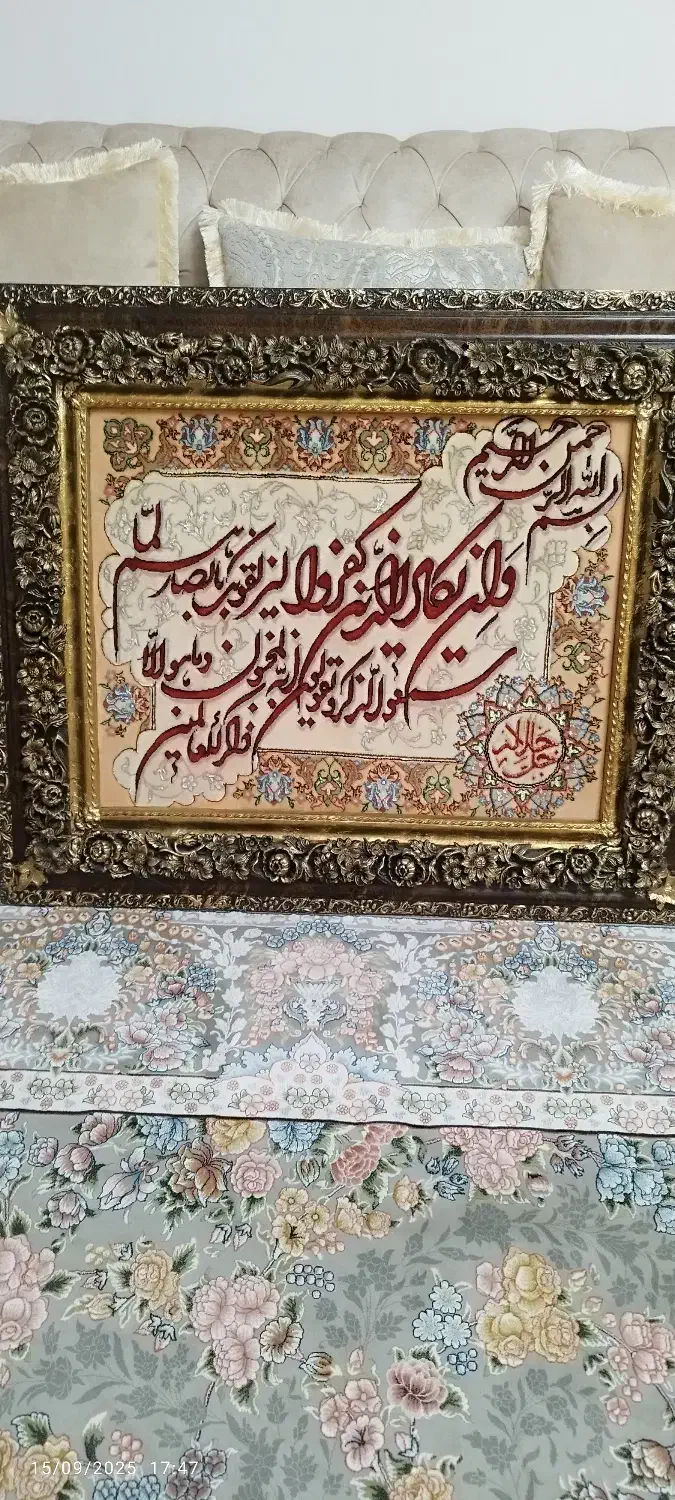 بسم الله الرحمن الرحیم
وَاِن یکاد الذین کفروا لیزلقونک بابصارهم لمّا
سمعوا الذکر و یقولون انّه لمجنون و ما هو الّا
ذکر للعالمین
جل جلاله
15/09/2025 17:47